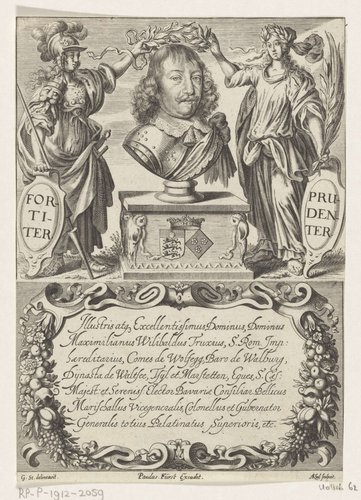 FOR-
TITER
PRU-
DENTER
Illustris atq, Excellentissimus Dominus, Dominus
Maximilianus Wilibaldus Truccius, S. Rom. Imp:
Hæreditarius, Comes de Wolfegg, Baro de Walburg,
Dynasta de Waltsee, et Marstetten, Eques, S. Cæs:
Majest: et Sereniss: Elector: Bavariæ Consiliar: Bellicus
Marischallus Vicegeneralis, Colonellus et Gubernator
Generalis totius Palatinatus Superioris, etc.
G. St. delineavit.
Paulus Fürst Excudit.
AKhol sculpsit.
RP-P-1912-2059